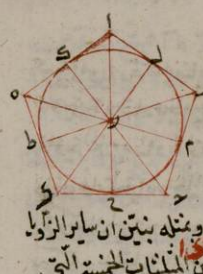 ا
ك
ل
ه
ب
و
ط
م
ح
وبمثله بنيّن ان ساير الزوايا
المثلثات الخمسة التي